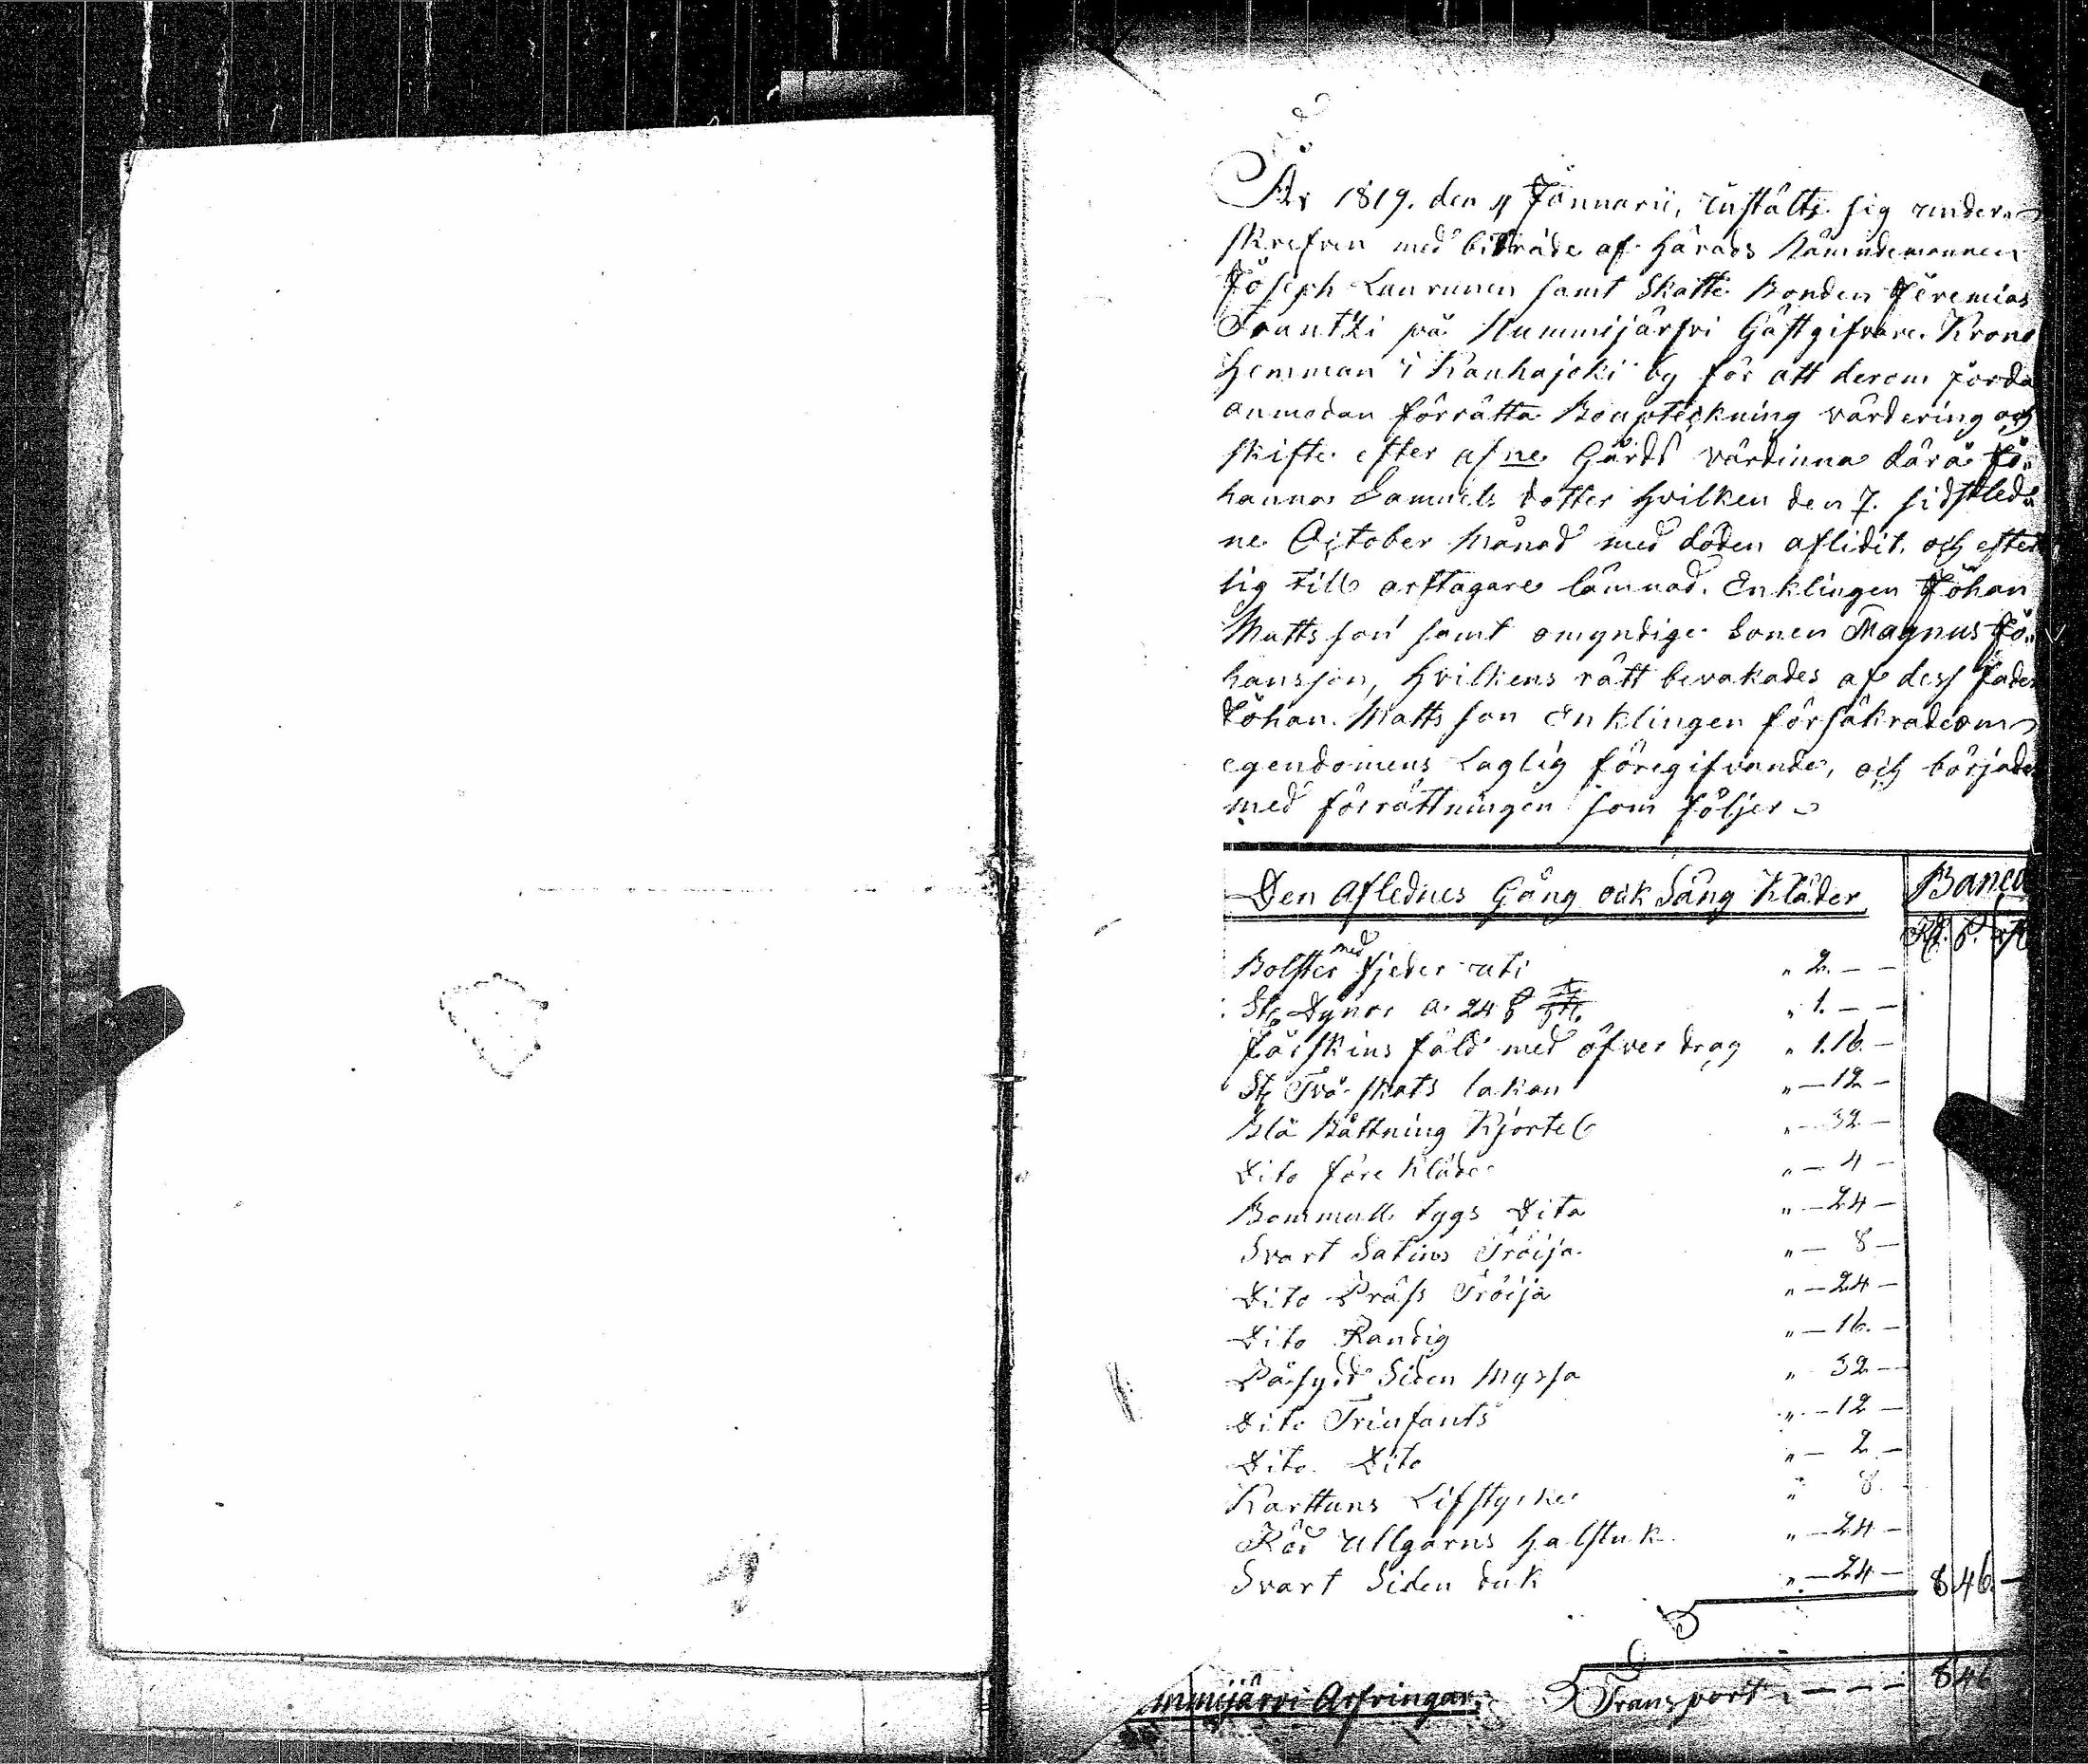 År 1819. den 4 Januarii, instälte sig under=
skrefven med biträde af Härads Nämndemannen
Joseph Laurunen samt Skatte Bonden Jeremias
Frantzi på Nummijärfvi Gästgifvare Krono
Hemman i Kauhajoki by för att derom giorda
anmodan förrätta Bouptekning värdering och
skifte efter afne Gårds värdinna därå Jo=
hanna Samuels dotter hvilken den 7. sidstled=
ne October Månad med döden aflidit, och efter
sig till arftagare lämnad. Enklingen Johan
Mattsson samt omyndige Sonen Magnus Jo=
hansson, hvilkens rätt bevakades af dess fader
Johan Mattsson Enklingen försäkrade om
egendomens Laglig föregifvande, och börjades
med förrättningen som följer
Den Aflednes Gång ock Säng Kläder Banco
Rd. ß. rst
Bolster med fjeder uti " 2. — —
2 St. Dynor a. 24 ß " 1. — —
Fårskins fäld med öfverdrag " 1. 16 —
St. Två skafts lakan " — 12 —
Blå Råttning Kjortel " — 32 —
Dito före Kläde " — 4 —
Bommulls tygs Dito " — 24 —
Svart Satins Tröija " — 8 —
Dito Träss Tröija " — 24 —
Dito Randig " — 16 —
Påsydd Siden Myssa " 32 —
Dito Triufants " — 12 —
Dito Dito " — 2 —
Karttuns Lifstycke " 8.
Röd Ullgarns halsduk " — 24 —
Svart Siden duk " — 24 — 8 46 —
mmijärvi Arfvingar. Transport — — — 8 46